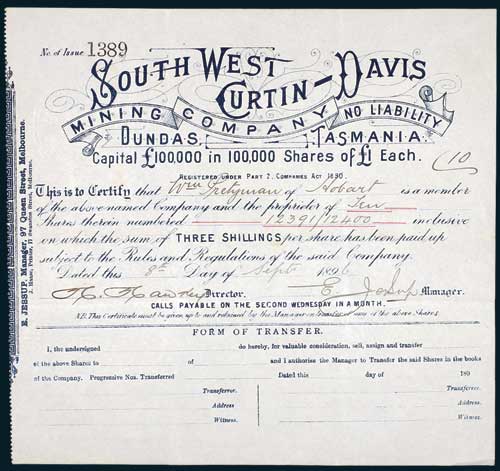 No. of Issue 1389
SOUTH WEST
CURTIN-DAVIS
MINING COMPANY NO LIABILITY
DUNDAS, TASMANIA.
Capital £100,000 in 100,000 Shares of £1 Each.
(10
REGISTERED UNDER PART 2. COMPANIES ACT 1890.
This is to Certify that Wm of Hobart is a member
of the above named Company and the proprietor of Ten
Shares therein numbered 12391/12400 inclusive
on which the sum of THREE SHILLINGS per share has been paid up
subject to the Rules and Regulations of the said Company.
Dated this 8th Day of Sept 1896
Director. E Jessup Manager.
CALLS PAYABLE ON THE SECOND WEDNESDAY IN A MONTH.
NB. This Certificate must be given up to and reissued by the Manager on transfer of any of the above Shares
FORM OF TRANSFER.
I, the undersigned do hereby, for valuable consideration, sell, assign and transfer
of the above Shares to of and I authorise the Manager to Transfer the said Shares in the books
of the Company. Progressive Nos. Transferred Dated this day of 189
Transferror. Transferree.
Address Address
Witness. Witness.
E. JESSUP, Manager, 97 Queen Street, Melbourne.